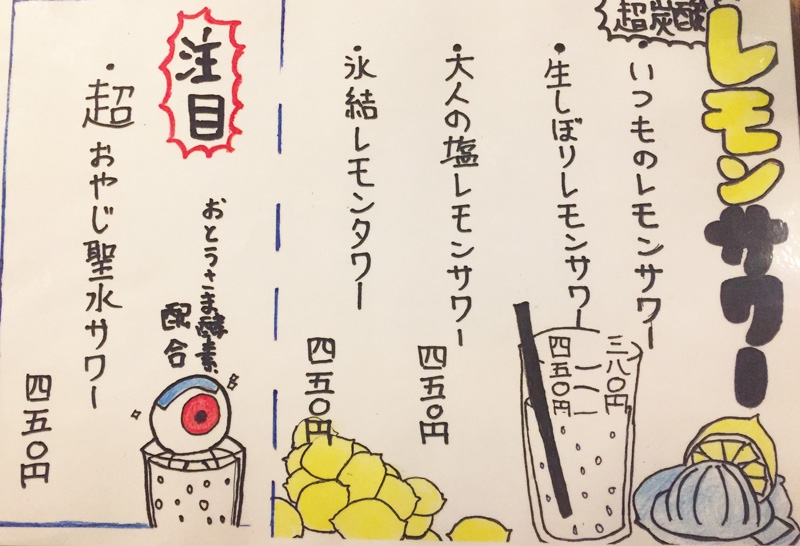 超炭酸
レモンサワー
・いつものレモンサワー
三八〇円
・生しぼりレモンサワー
四五〇円
・大人の塩レモンサワー
四五〇円
・氷結レモンタワー
四五〇円
注目
・超おやじ聖水サワー
おとうさま酵素
配合
四五〇円